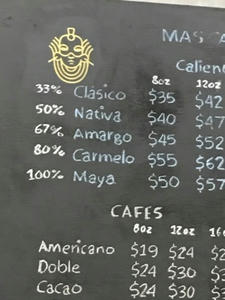 MAS CA
Calien
8oz 12oz
33% Clásico $35 $42
50% Nativa $40 $47
67% Amargo $45 $52
80% Carmelo $55 $62
100% Maya $50 $57
CAFES
8oz 12oz 16
Americano $19 $24 $2
Doble $24 $30 $3
Cacao $24 $30 $3